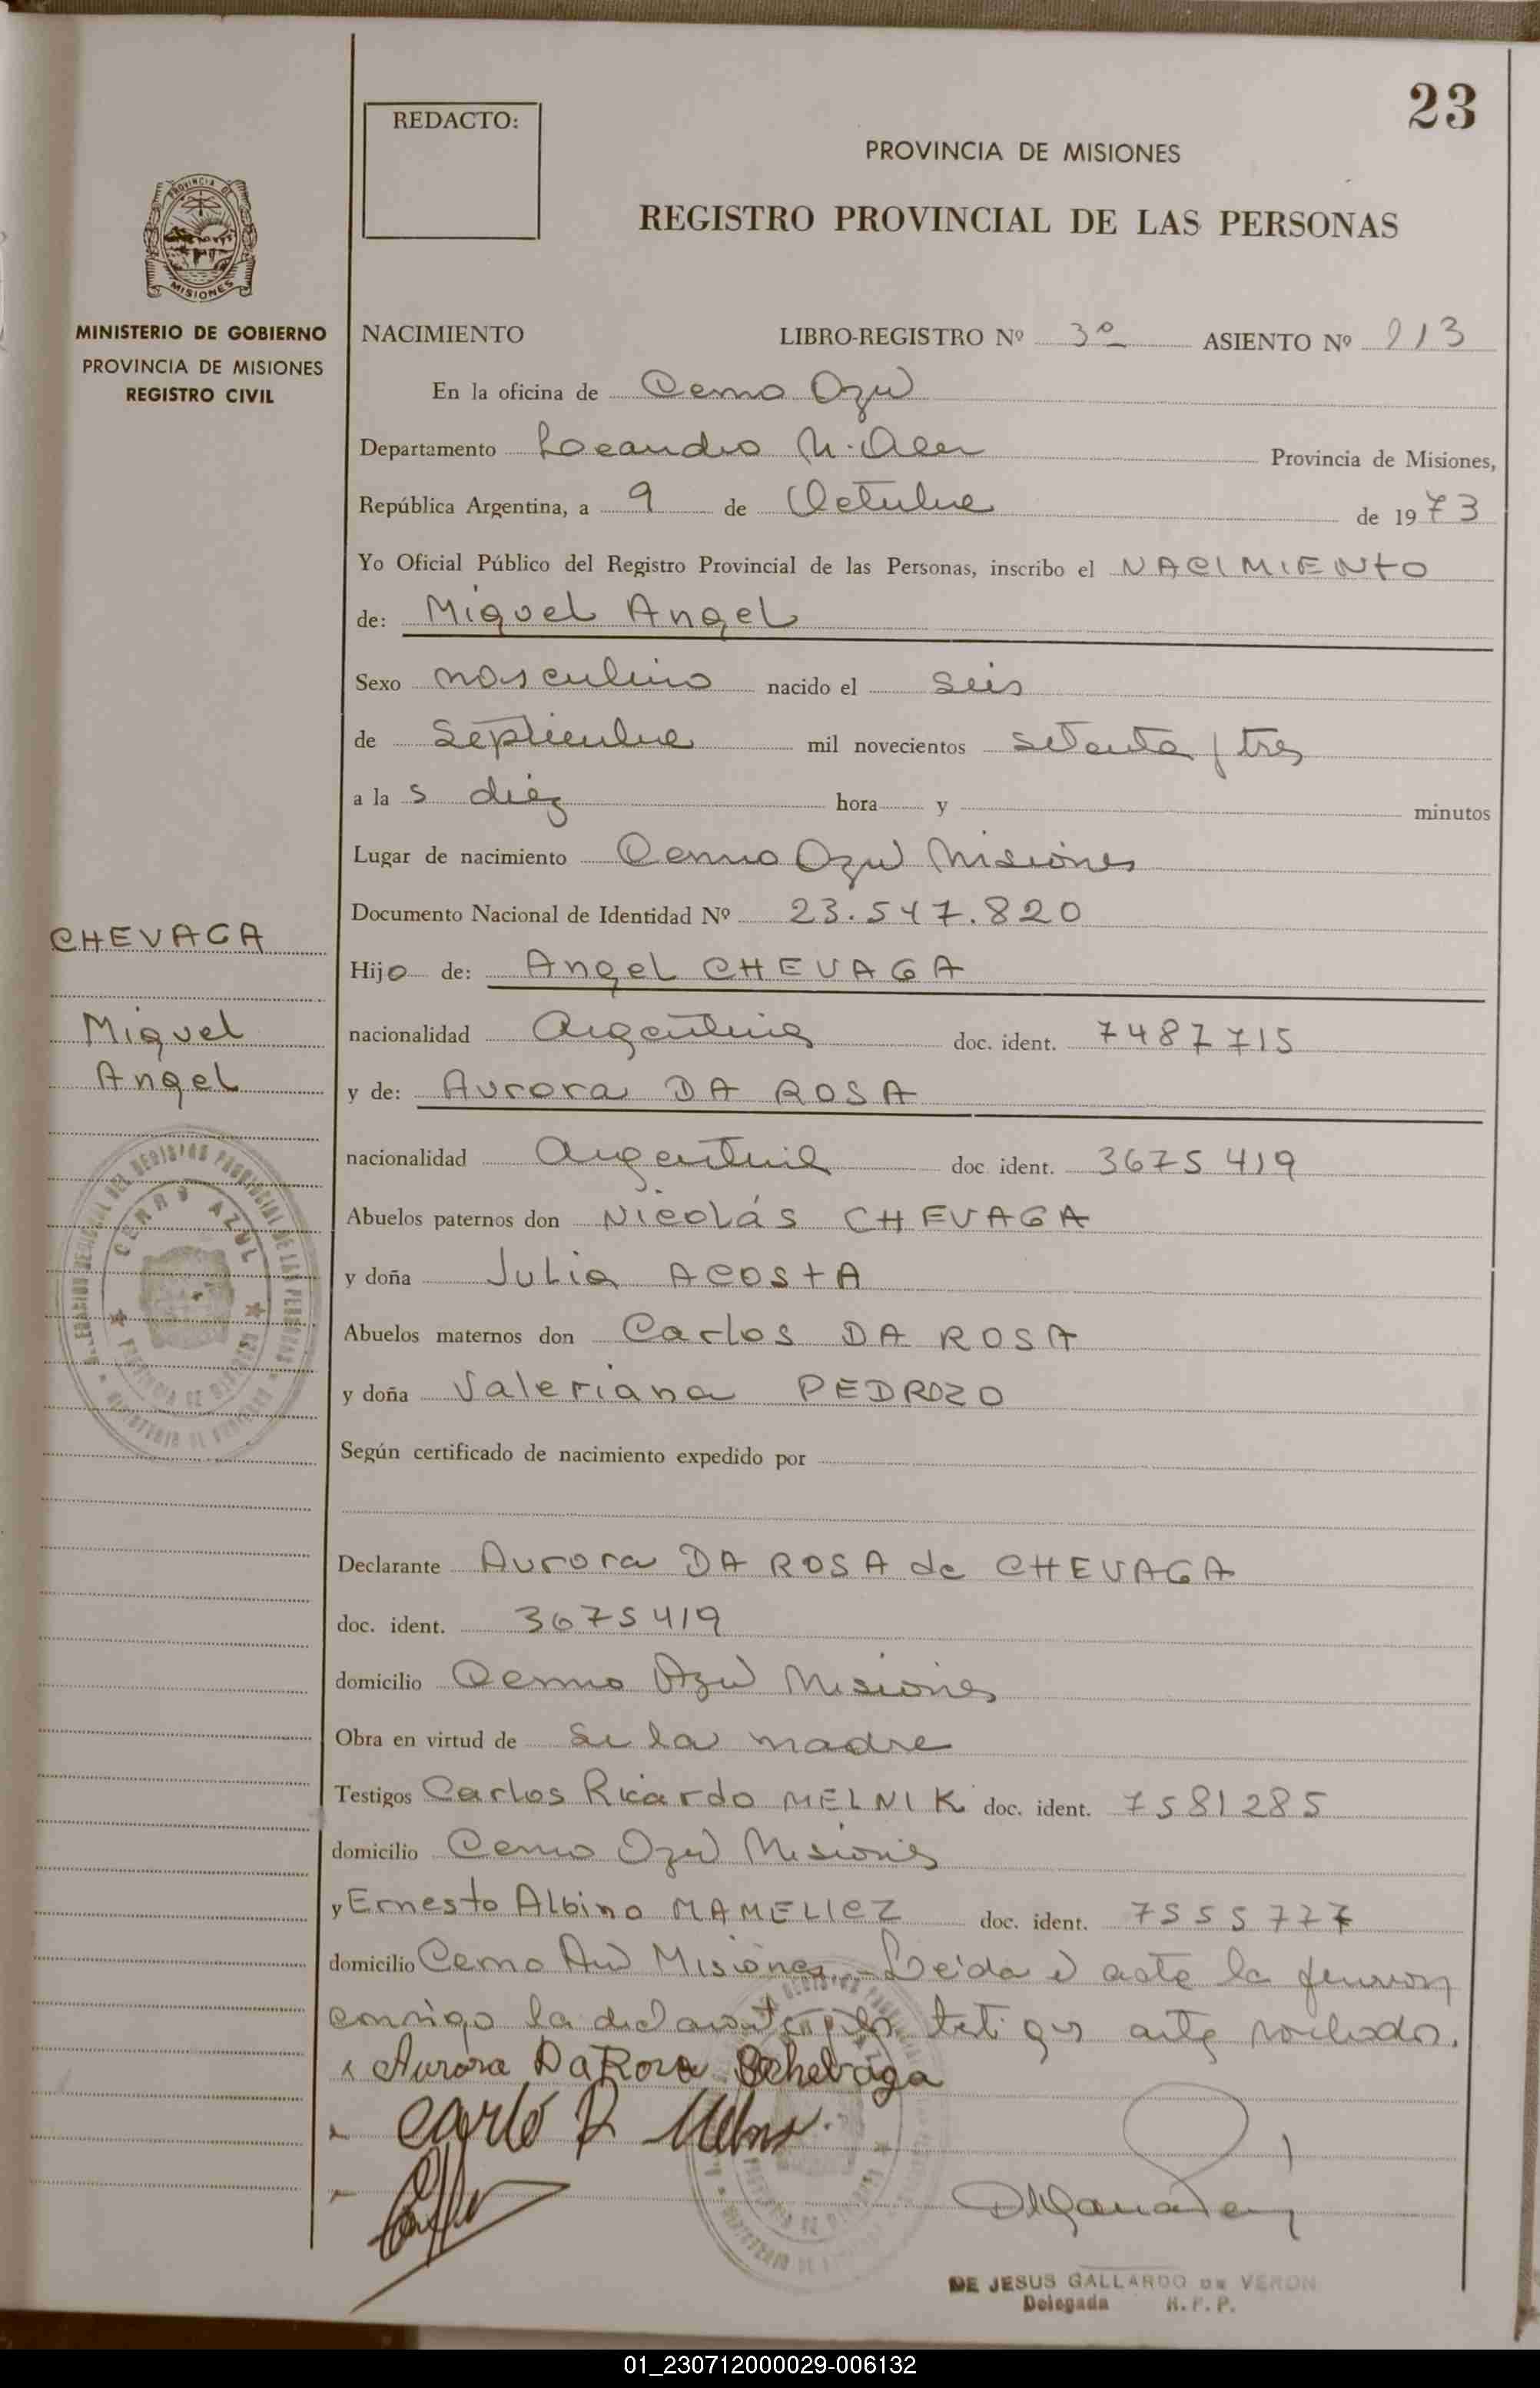 23
REDACTO:
PROVINCIA DE MISIONES
REGISTRO PROVINCIAL DE LAS PERSONAS
PROVINCIA DE
MISIONES
MINISTERIO DE GOBIERNO
PROVINCIA DE MISIONES
REGISTRO CIVIL
NACIMIENTO LIBRO-REGISTRO Nº 3º ASIENTO Nº 213
En la oficina de Cerro Azul
Departamento Leandro N. Alem Provincia de Misiones,
República Argentina, a 9 de Octubre de 1973
Yo Oficial Público del Registro Provincial de las Personas, inscribo el NACIMIENTO
de: Miguel Angel
Sexo masculino nacido el seis
de Septiembre mil novecientos setenta y tres
a la s diez hora y minutos
Lugar de nacimiento Cerro Azul Misiones
Documento Nacional de Identidad Nº 23.547.820
CHEVAGA
Hijo de: Angel CHEVAGA
Miguel
nacionalidad Argentina doc. ident. 7487715
Angel
y de: Aurora DA ROSA
nacionalidad argentina doc. ident. 3675419
Abuelos paternos don Nicolás CHEVAGA
y doña Julia ACOSTA
CERRO AZUL
Abuelos maternos don Carlos DA ROSA
y doña Valeriana PEDROZO
Según certificado de nacimiento expedido por
Declarante Aurora DA ROSA de CHEVAGA
doc. ident. 3675419
domicilio Cerro Azul Misiones
Obra en virtud de ser la madre
Testigos Carlos Ricardo MELNIK doc. ident. 7581285
domicilio Cerro Azul Misiones
y Ernesto Albino doc. ident. 7555777
domicilio Cerro Azul Misiones.- Leida el acta la firman
conmigo la declarante y los testigos
Aurora Da Rosa Dchevaga
Carlo R
DE JESUS GALLARDO DE VERON
Delegada R.P.P.
01_230712000029-006132